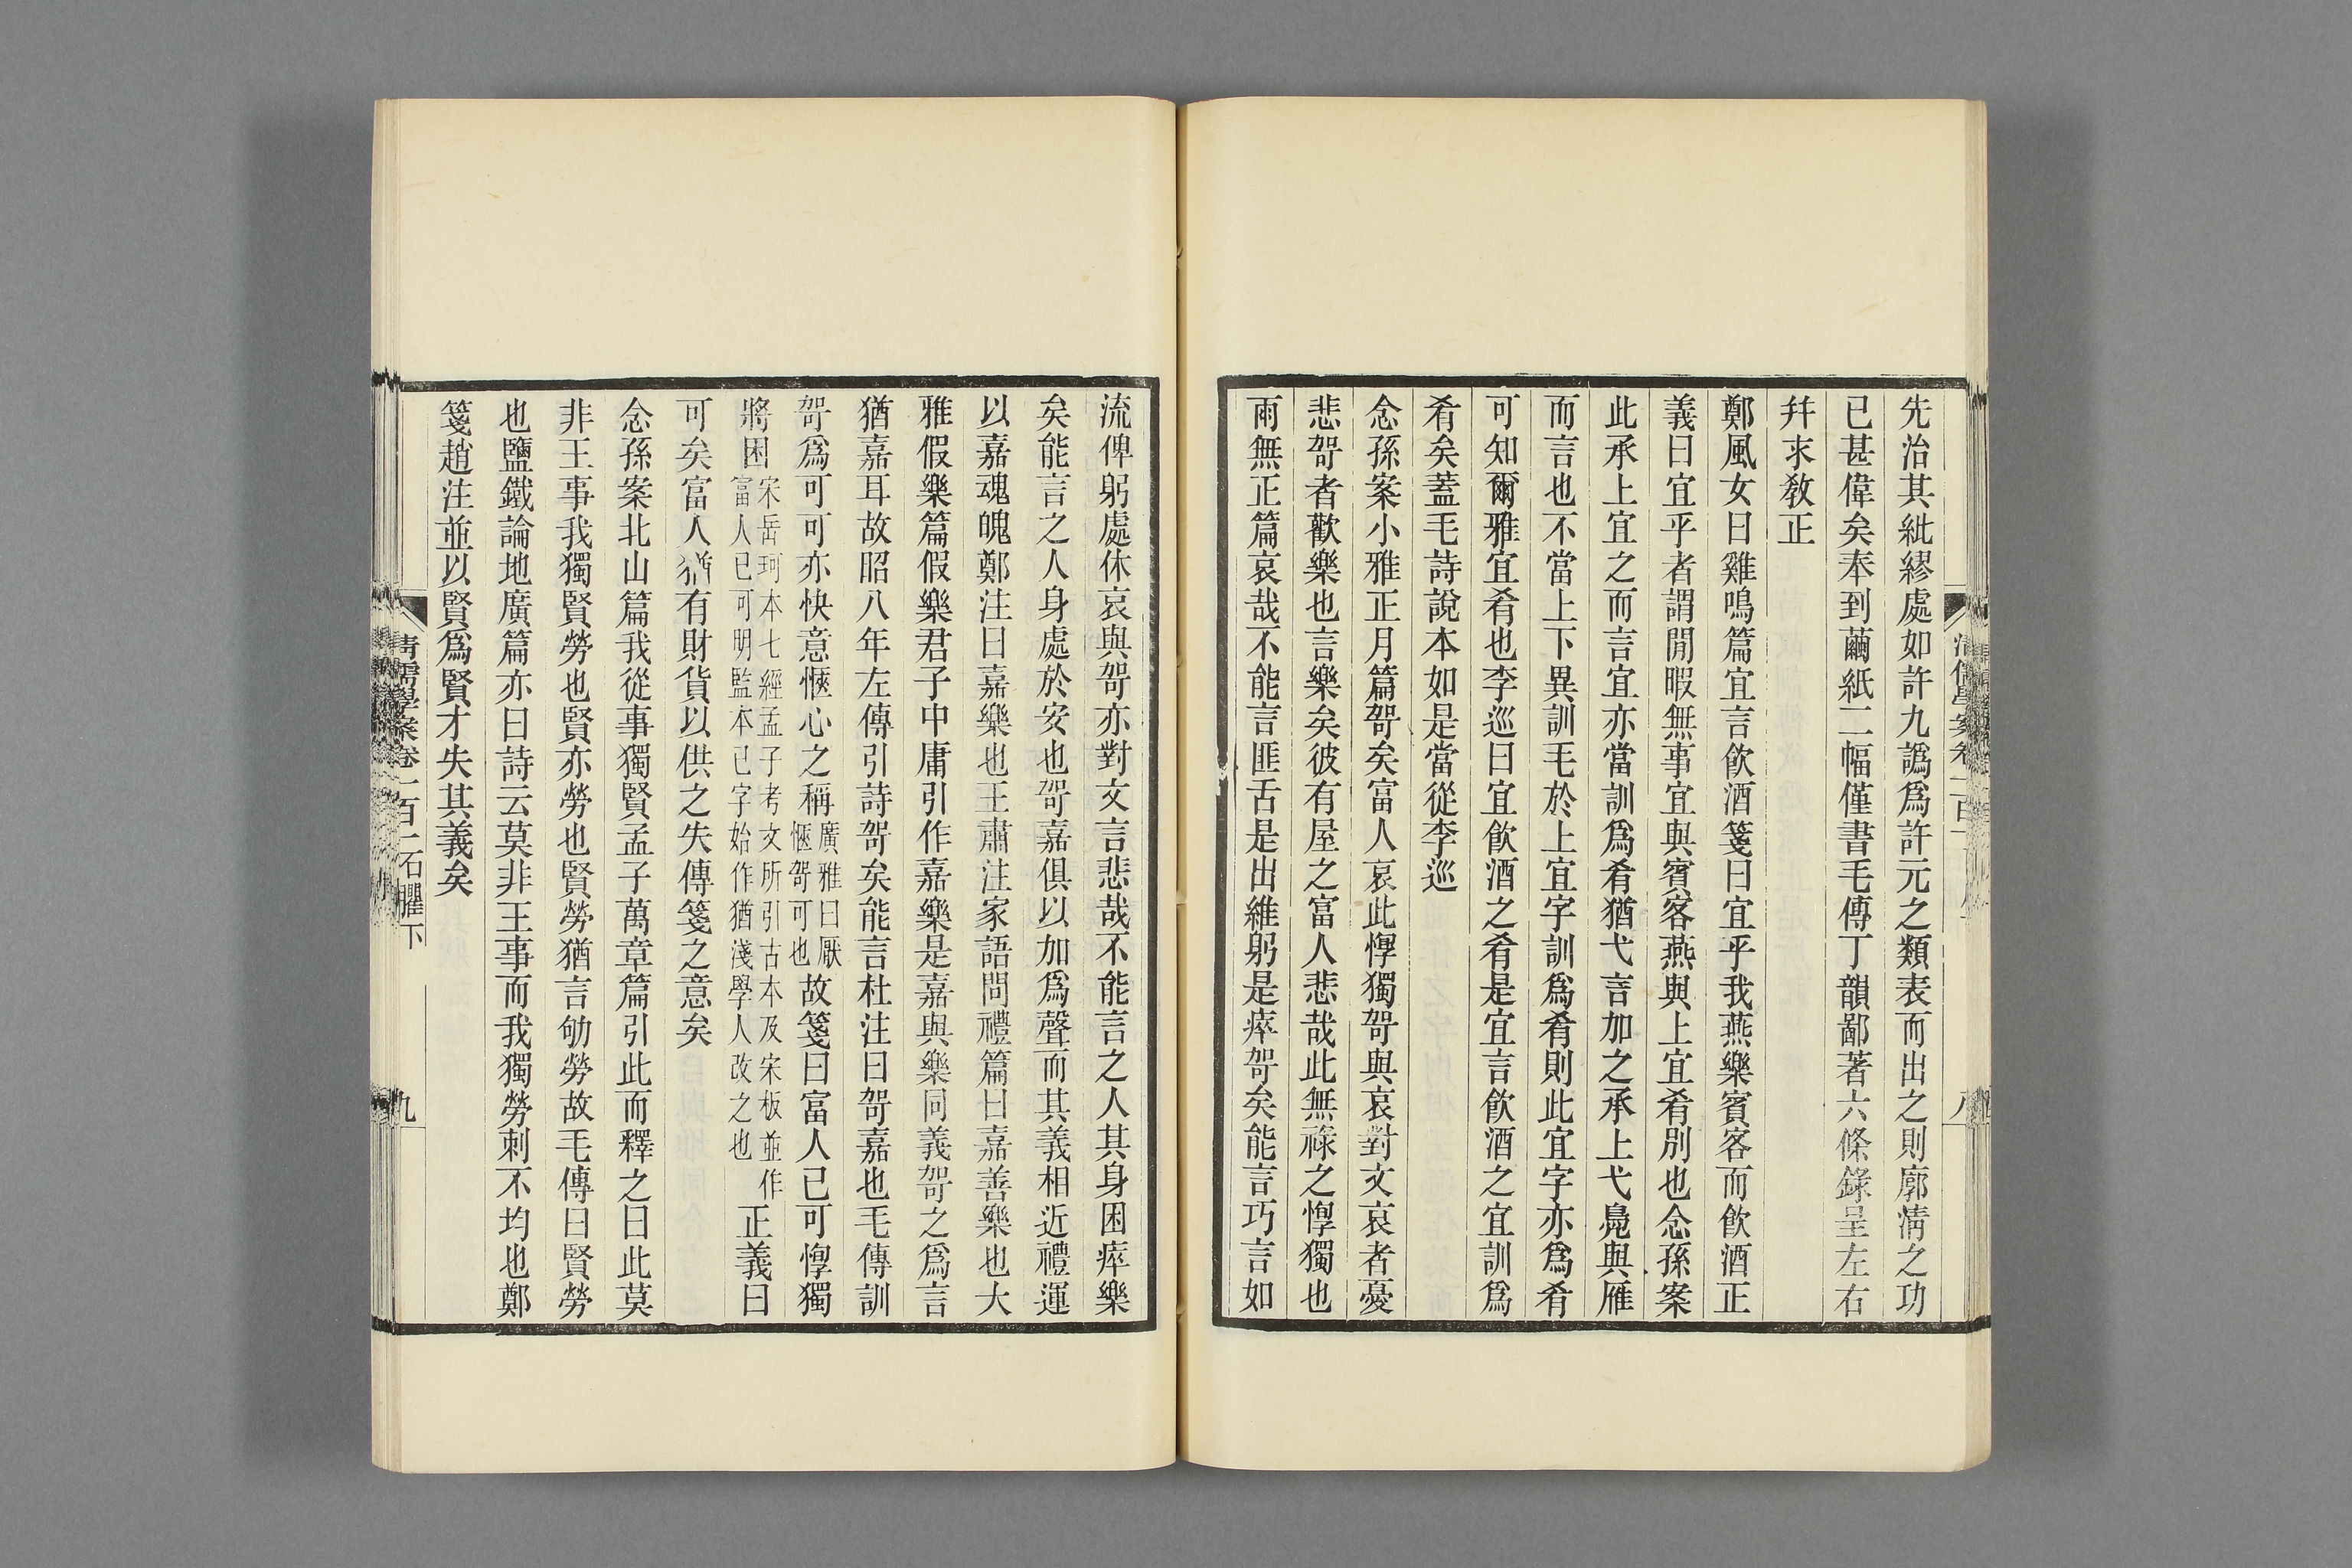 先治其紕繆處如許九譌爲許元之類表而出之則廓淸之功
已甚偉矣奉到繭紙二幅僅書毛傳丁韻鄙著六條錄呈左右
幷求敎正
鄭風女曰雞鳴篇宜言飮酒箋曰宜乎我燕樂賓客而飮酒正
義曰宜乎者謂閒暇無事宜與賓客燕與上宜肴別也念孫案
此承上宜之而言宜亦當訓爲肴猶弋言加之承上弋鳧與雁
而言也不當上下異訓毛於上宜字訓爲肴則此宜字亦爲肴
可知爾雅宜肴也李巡曰宜飮酒之肴是宜言飮酒之宜訓爲
肴矣蓋毛詩說本如是當從李巡
念孫案小雅正月篇哿矣富人哀此惸獨哿與哀對文哀者憂
悲哿者歡樂也言樂矣彼有屋之富人悲哉此無祿之惸獨也
雨無正篇哀哉不能言匪舌是出維躬是瘁哿矣能言巧言如
流俾躬處休哀與哿亦對文言悲哉不能言之人其身困瘁樂
矣能言之人身處於安也哿嘉俱以加爲聲而其義相近禮運
以嘉魂魄鄭注曰嘉樂也王肅注家語問禮篇曰嘉善樂也大
雅假樂篇假樂君子中庸引作嘉樂是嘉與樂同義哿之爲言
猶嘉耳故昭八年左傳引詩哿矣能言杜注曰哿嘉也毛傳訓
哿爲可可亦快意愜心之稱廣雅曰厭愜哿可也故箋曰富人已可惸獨
將困宋岳珂本七經孟子考文所引古本及宋板並作富人已可明監本已字始作猶淺學人改之也正義曰
可矣富人猶有財貨以供之失傳箋之意矣
念孫案北山篇我從事獨賢孟子萬章篇引此而釋之曰此莫
非王事我獨賢勞也賢亦勞也賢勞猶言劬勞故毛傳曰賢勞
也鹽鐵論地廣篇亦曰詩云莫非王事而我獨勞刺不均也鄭
箋趙注並以賢爲賢才失其義矣
淸儒學案卷一百一 石臞下
九